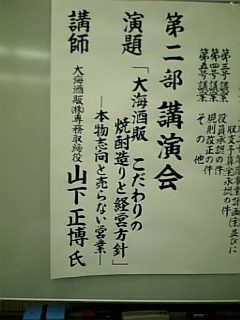 収支予算案承認の件
第三号議案
役員承認の件
第四号議案
規則改正の件
第五号議案
その他
第二部 講演会
演題
「大海酒販 こだわりの
焼酎造りと経営方針」
―本物志向と売らない営業―
講師
大海酒販㈱専務取締役
山下正博氏